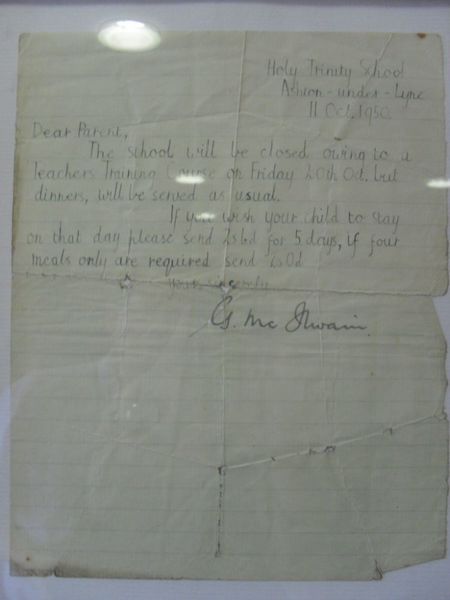 Holy Trinity School
Ashton-under-Lyne
11 Oct. 1950
Dear Parent,
The school will be closed owing to a
Teachers Training Course on Friday 20th Oct. but
dinners, will be served as usual.
If you wish your child to stay
on that day please send 2s 6d for 5 days, if four
meals only are required send 2s 0d
Yours sincerely
G. Mc Ilwain.